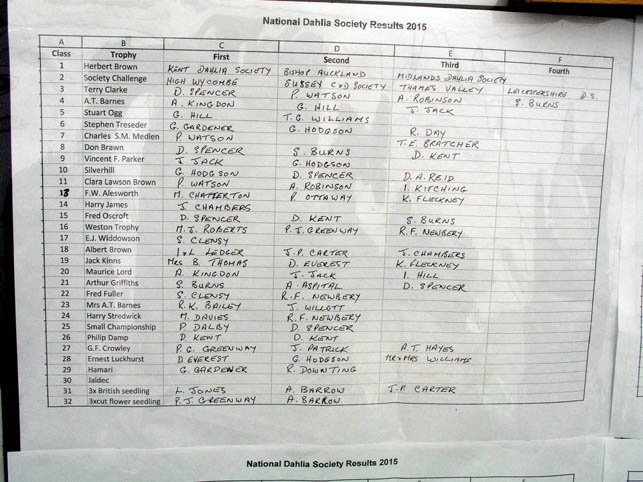 National Dahlia Society Results 2015
A B C D E F
Class Trophy First Second Third Fourth
1 Herbert Brown KENT DAHLIA SOCIETY BISHOP AUCKLAND MIDLANDS DAHLIA SOCIETY
2 Society Challenge HIGH WYCOMBE SUSSEX C&D SOCIETY THAMES VALLEY LEICESTERSHIRE D.S.
3 Terry Clarke D. SPENCER P. WATSON A. ROBINSON S. BURNS
4 A.T. Barnes A. KINGDON G. HILL J. JACK
5 Stuart Ogg G. HILL T.G. WILLIAMS
6 Stephen Treseder G. GARDENER G. HODGSON R. DAY
7 Charles S.M. Medlen P WATSON T.E. BRATCHER
8 Don Brawn D. SPENCER S. BURNS D. KENT
9 Vincent F. Parker J. JACK G. HODGSON
10 Silverhill G HODGSON D. SPENCER D.A. REID
11 Clara Lawson Brown P. WATSON A. ROBINSON I. KITCHING
F.W. Alesworth M. CHATTERTON P OTTAWAY K. FLECKNEY
14 Harry James J CHAMBERS
15 Fred Oscroft D. SPENCER D. KENT S. BURNS
16 Weston Trophy M.J. ROBERTS P.J. GREENWAY R.F. NEWBERY
17 E.J. Widdowson S. CLENSY
18 Albert Brown LEDGER J.P. CARTER J. CHAMBERS
19 Jack Kinns MRS B THOMAS D. EVEREST K. FLECKNEY
20 Maurice Lord A. KINGDON J. JACK I. HILL
21 Arthur Griffiths S BURNS A. ASPITAL D. SPENCER
22 Fred Fuller S. CLENSY R.F. NEWBERY
23 Mrs A.T. Barnes R.K. BAILEY J. WILLOTT
24 Harry Stredwick M. DAVIES R.F. NEWBERY
25 Small Championship P DALBY D. SPENCER
26 Philip Damp D. KENT D. KENT
27 G.F. Crowley P.G. GREENWAY J. PATRICK A.T. HAYES
28 Ernest Luckhurst D EVEREST G. HODGSON MR+MRS WILLIAMS
29 Hamari G. GARDENER R. DOWNTING
30 Jaldec
31 3x British seedling L. JONES A. BARROW J.P. CARTER
32 3xcut flower seedling P.J. GREENWAY A. BARROW
National Dahlia Society Results 2015
C D E F